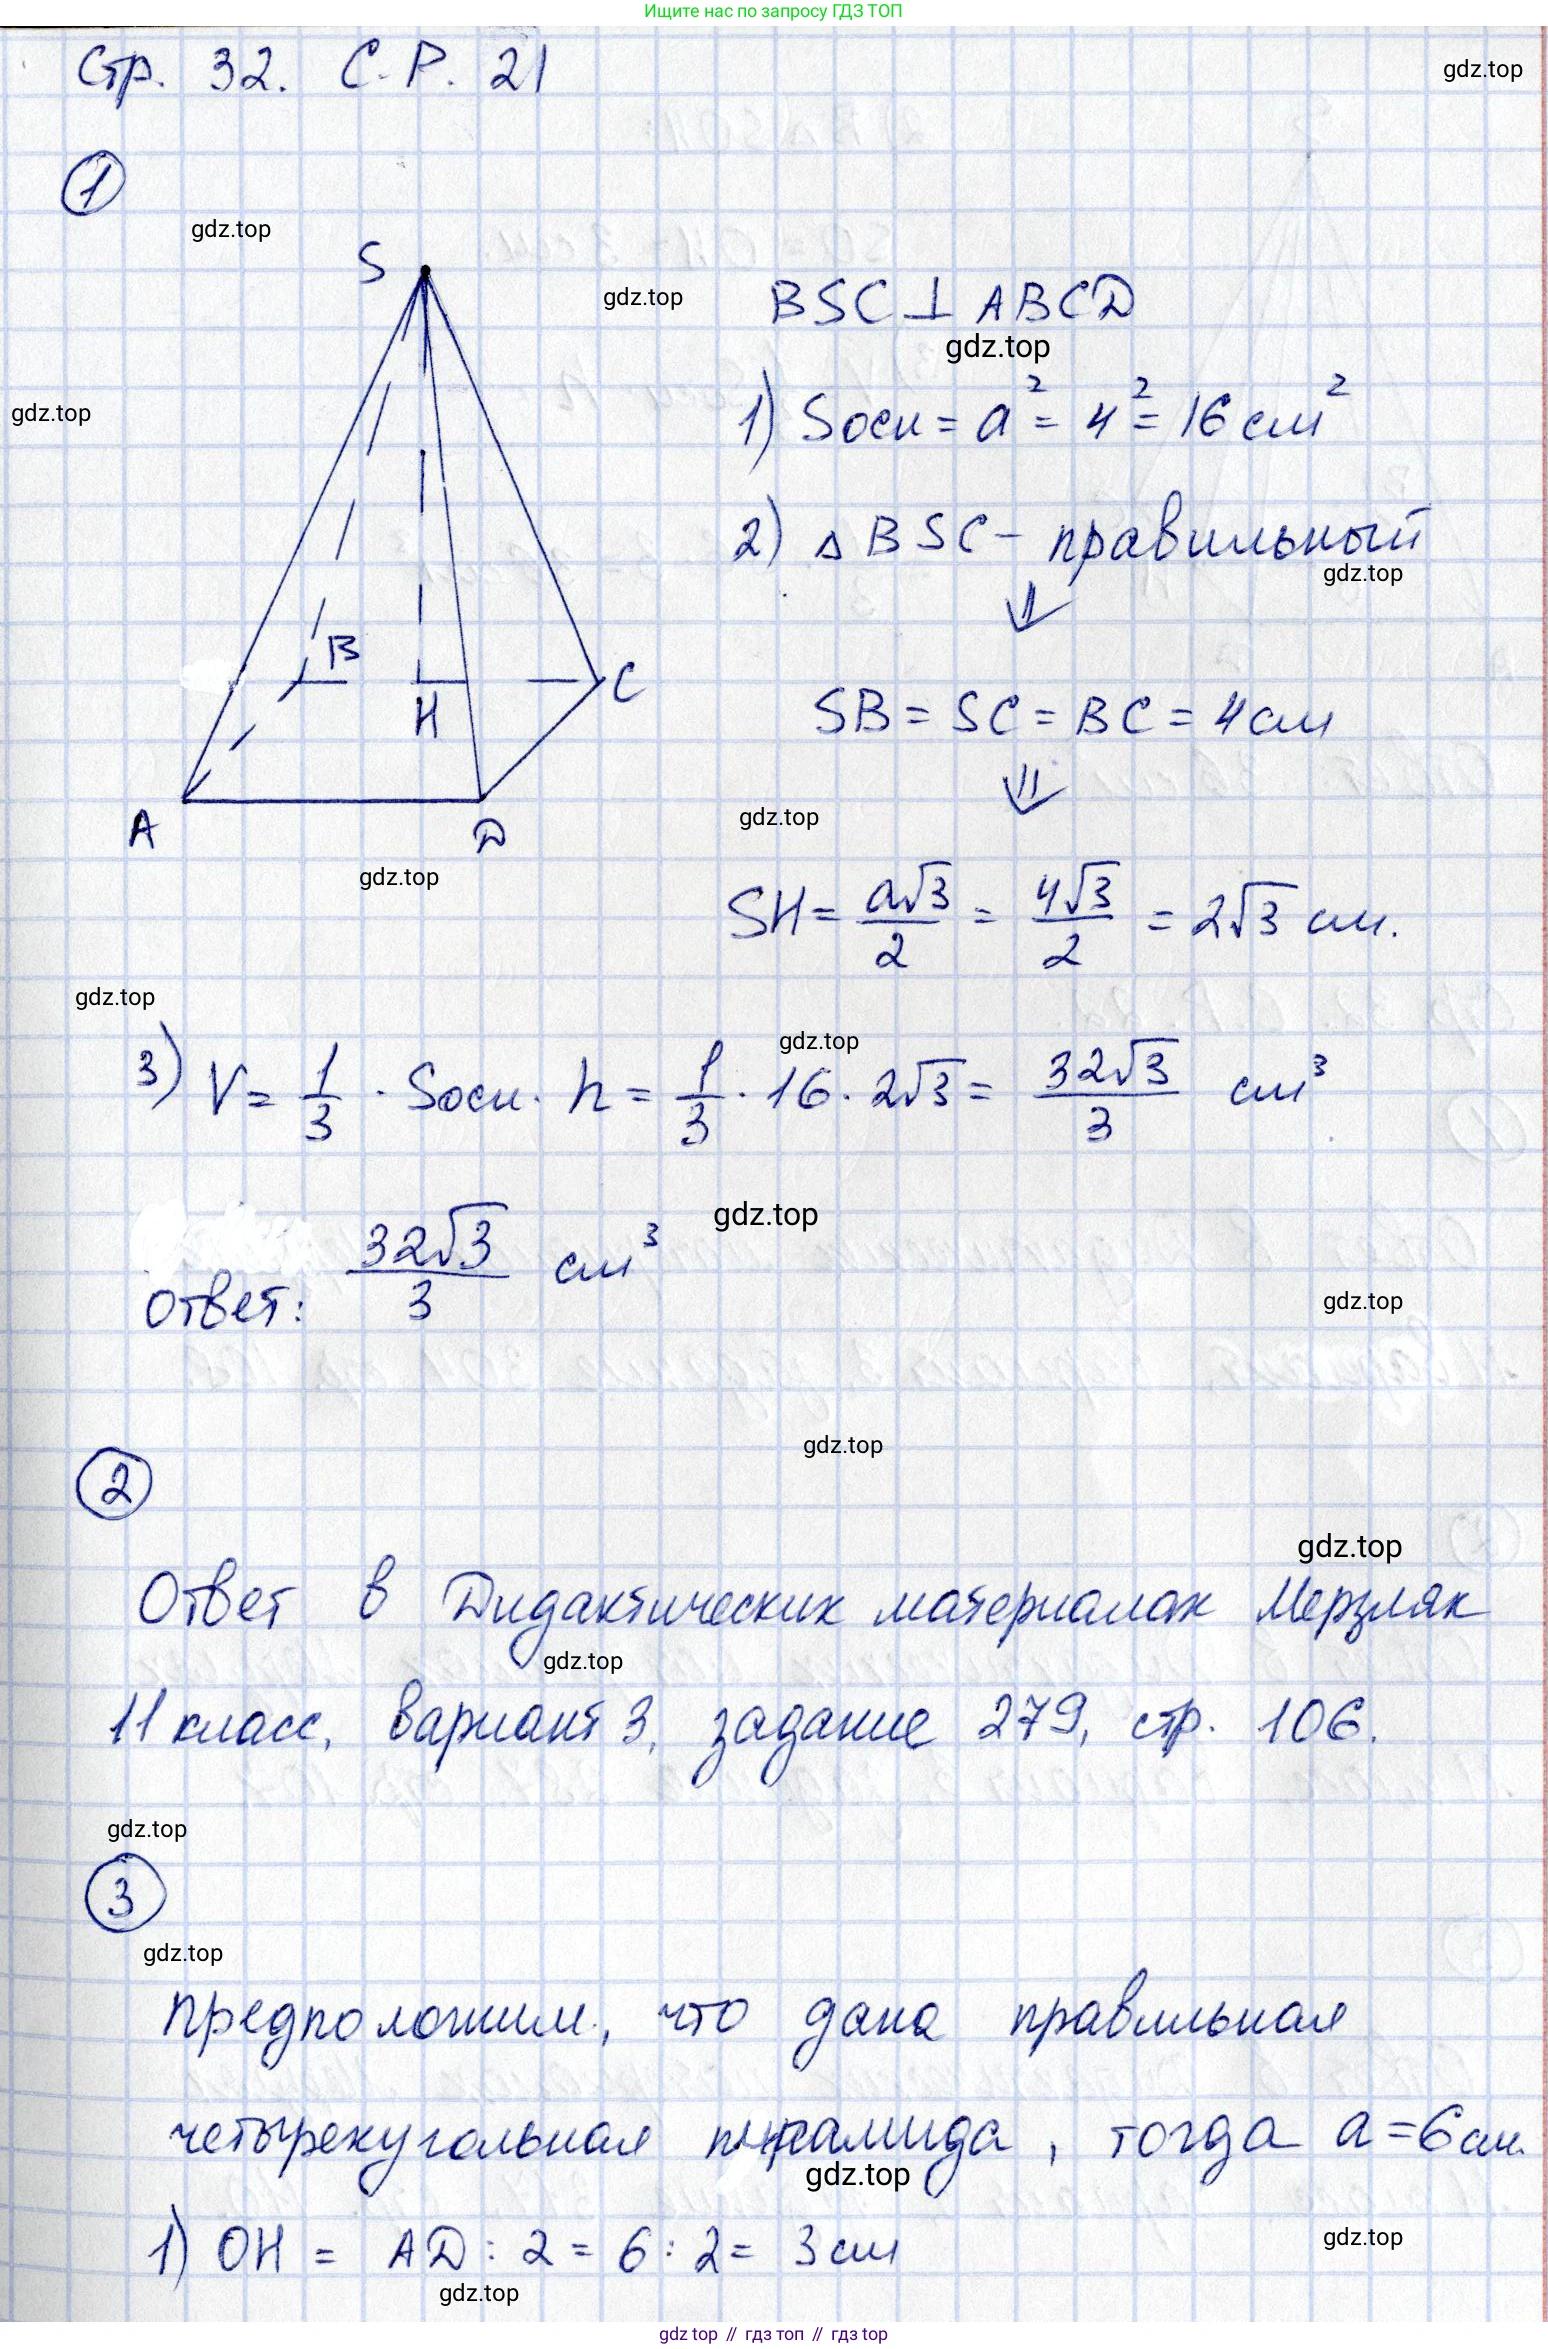 Ищите нас по запросу ГДЗ ТОП
Стр. 32. С.Р. 21
gdz.top
1
gdz.top
S
gdz.top
BSC ⊥ ABCD
gdz.top
gdz.top
1) Sосн = a² = 4² = 16 см²
2) △ BSC - правильный
gdz.top
⇓
B
H
C
SB = SC = BC = 4 см
⇓
gdz.top
A
D
gdz.top
SH = a√3/2 = 4√3/2 = 2√3 см.
gdz.top
gdz.top
3) V = 1/3 · Sосн · h = 1/3 · 16 · 2√3 = 32√3/3 см³
gdz.top
Ответ: 32√3/3 см³
gdz.top
gdz.top
2
gdz.top
Ответ в Дидактических материалах Мерзляк
gdz.top
11 класс, вариант 3, задание 279, стр. 106.
gdz.top
3
gdz.top
Предположим, что дана правильная
четырехугольная пирамида, тогда a = 6 см.
gdz.top
1) OH = AD : 2 = 6 : 2 = 3 см
gdz.top
gdz.top
gdz top // гдз топ // гдз top